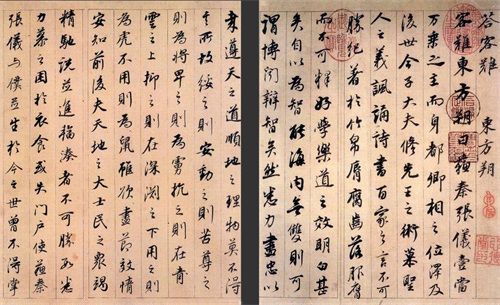 答客難 東方朔
客難東方朔曰蘇秦張儀壹當
万乘之主而身都卿相之位澤及
後世今子大夫修先王之術慕聖
人之義諷誦詩書百家之言不可
勝紀著於竹帛唇腐齒落服膺
而不可釋好學樂道之效明白甚
矣自以為智能海內無雙則可
謂博聞辯智矣然悉力盡忠以
遵天之道順地之理物莫不得
其所故綏之則安動之則苦尊之
則為將卑之則為虜抗之則在青
雲之上抑之則在深淵之下用之則
為虎不用則為鼠雖欲盡節效情
安知前後夫天地之大士民之眾竭
精馳說並進輻湊者不可勝數悉
力慕之困於衣食或失門戶使蘇秦
張儀與僕並生於今之世曾不得掌